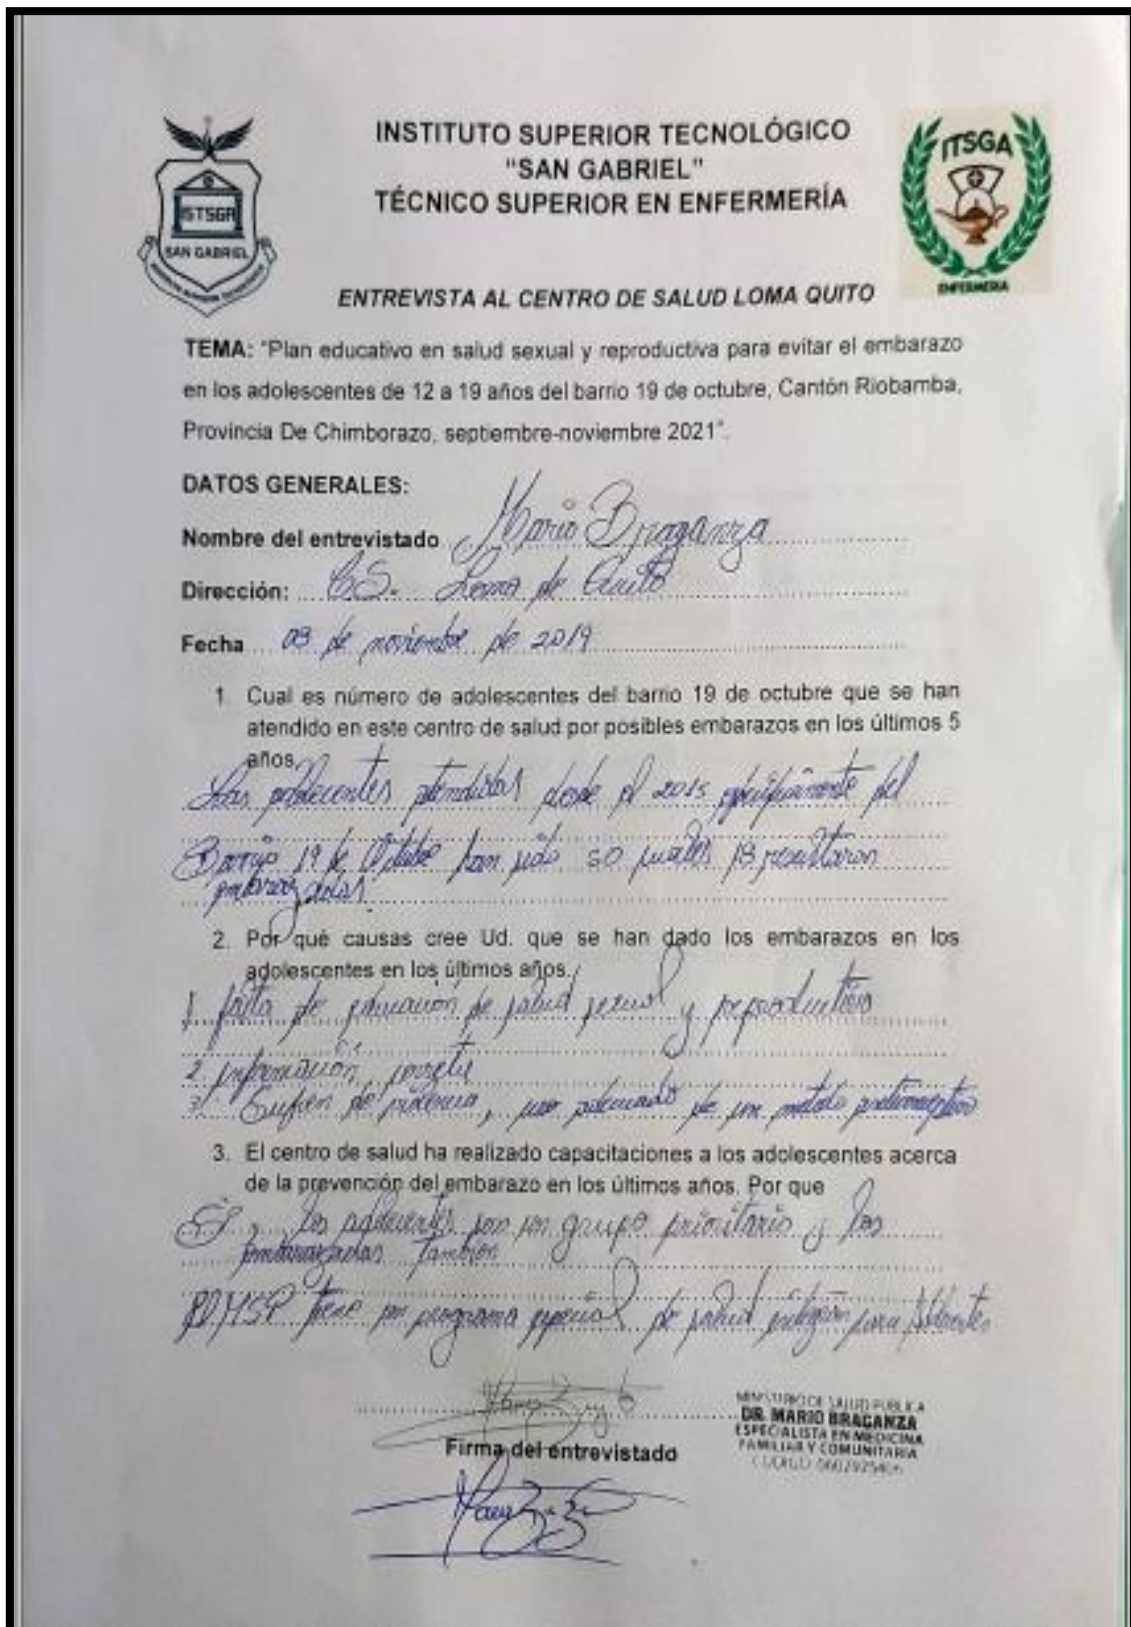 INSTITUTO SUPERIOR TECNOLÓGICO
"SAN GABRIEL"
TÉCNICO SUPERIOR EN ENFERMERÍA
ISTSGA
SAN GABRIEL
ITSGA
ENFERMERIA
ENTREVISTA AL CENTRO DE SALUD LOMA QUITO
TEMA: "Plan educativo en salud sexual y reproductiva para evitar el embarazo
en los adolescentes de 12 a 19 años del barrio 19 de octubre, Cantón Riobamba,
Provincia De Chimborazo, septiembre-noviembre 2021".
DATOS GENERALES:
Nombre del entrevistado Mario Braganza
Dirección: CS. Loma de Quito
Fecha 03 de noviembre de 2019
1. Cual es número de adolescentes del barrio 19 de octubre que se han
atendido en este centro de salud por posibles embarazos en los últimos 5
años.
Las adolecentes atendidas desde el 2015 específicamente del
Barrio 19 de Octubre han sido 50 cuales 18 resultaron
embarazadas
2. Por qué causas cree Ud. que se han dado los embarazos en los
adolescentes en los últimos años.
1. falta de educación de salud sexual y reproductiva
2. información
3. Sufren de violencia, uso adecuado de un metodo anticonceptivo
3. El centro de salud ha realizado capacitaciones a los adolescentes acerca
de la prevención del embarazo en los últimos años. Por que
Si, los adolecentes son un grupo prioritario y las
embarazadas tambien
MSP tiene un programa especial de salud para Adolecentes
Firma del entrevistado
MINISTERIO DE SALUD PÚBLICA
DR. MARIO BRAGANZA
ESPECIALISTA EN MEDICINA
FAMILIAR Y COMUNITARIA